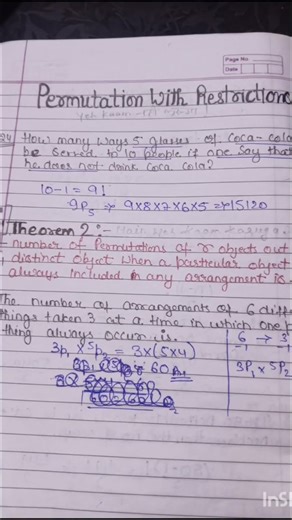 Page No:
Date
Permutation With Restriction
24
How many ways 5 glasses of coca-cola
be served to 10 people if one say that
he does not drink coca cola?
10-1 = 9!
9P5 ⇒ 9×8×7×6×5 ⇒ 15120
Theorem 2:-
number of Permutations of r objects out
distinct object when a particular object
always included in any arrangement is
The number of arrangements of 6 diff
things taken 3 at a time in which one p
thing always occurs is.
3P1 × 5P2 = 3×(5×4)
= 60
6 → 3
-1 -1
3P1 × 5P2
InSh